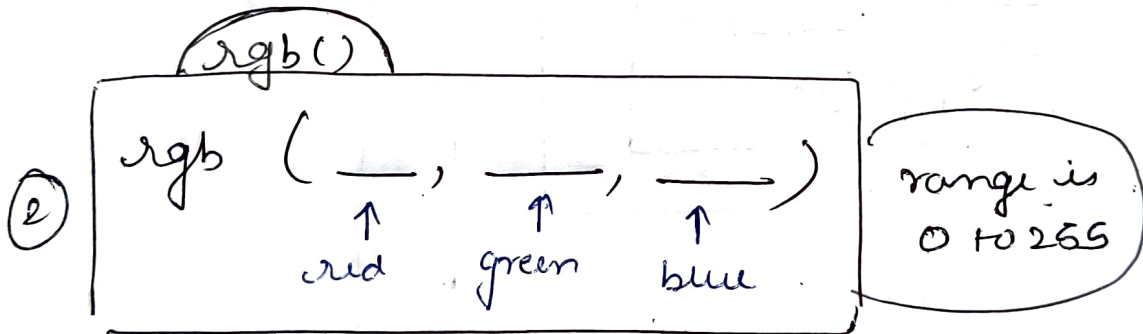 rgb()
② rgb ( __, __, __ )
↑ ↑ ↑
red green blue
range is
0 to 255